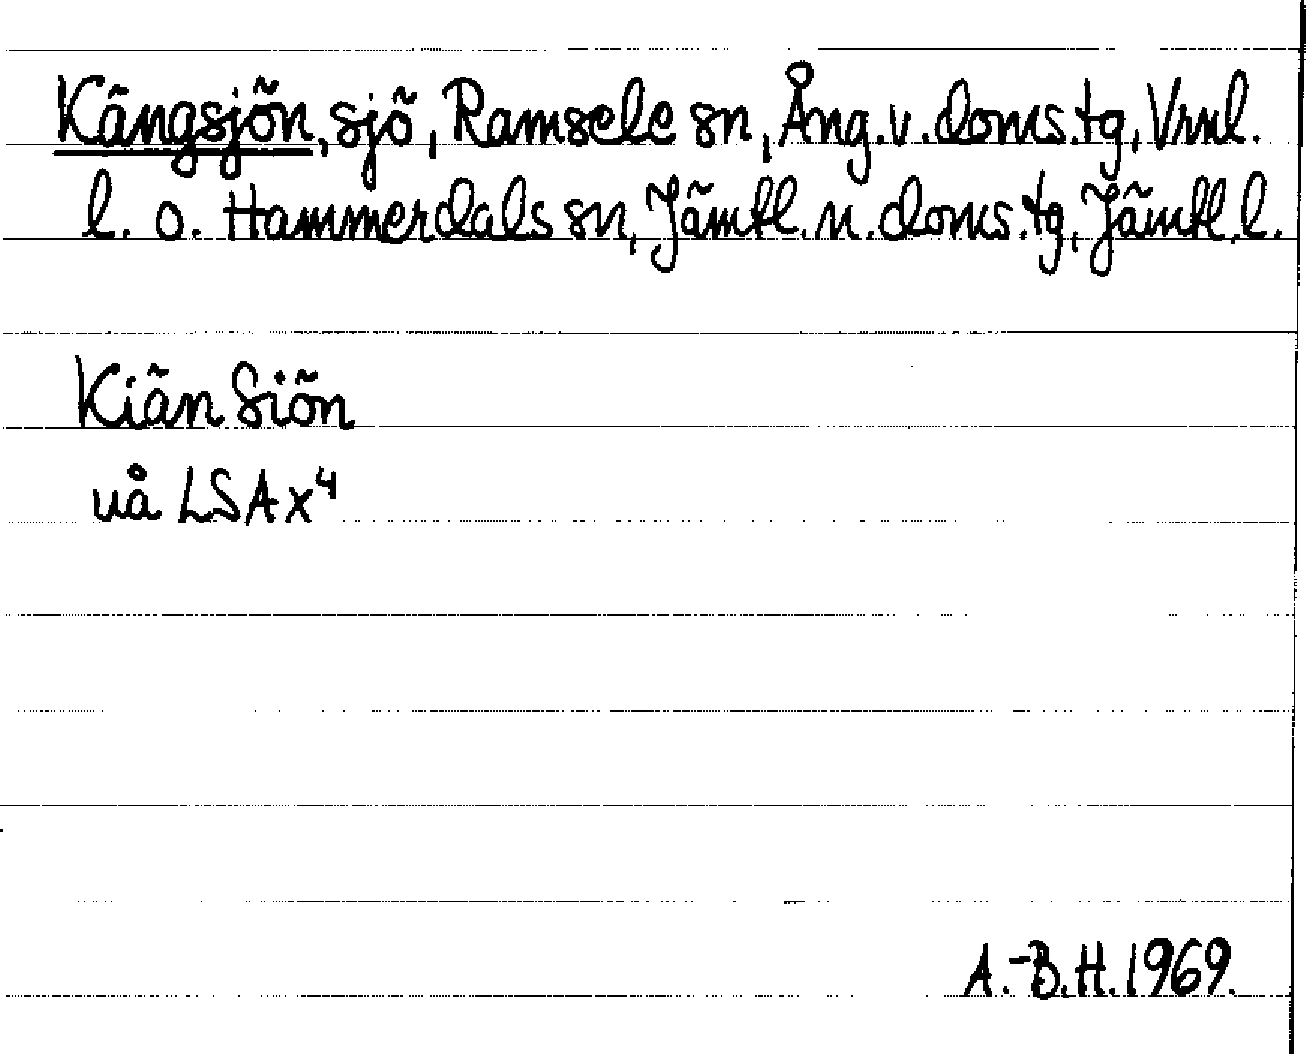 Kängsjön, sjö, Ramsele sn, Ång. v. doms. tg, Vrnl.
l. o. Hammerdals sn, Jämtl. n. doms. tg, Jämtl. l.
Kiän Siön
uå LSA x⁴
A.-B.H. 1969.